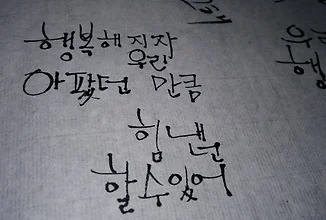 행복해지자
우린
아팠던 만큼
힘 낸
할 수 있어